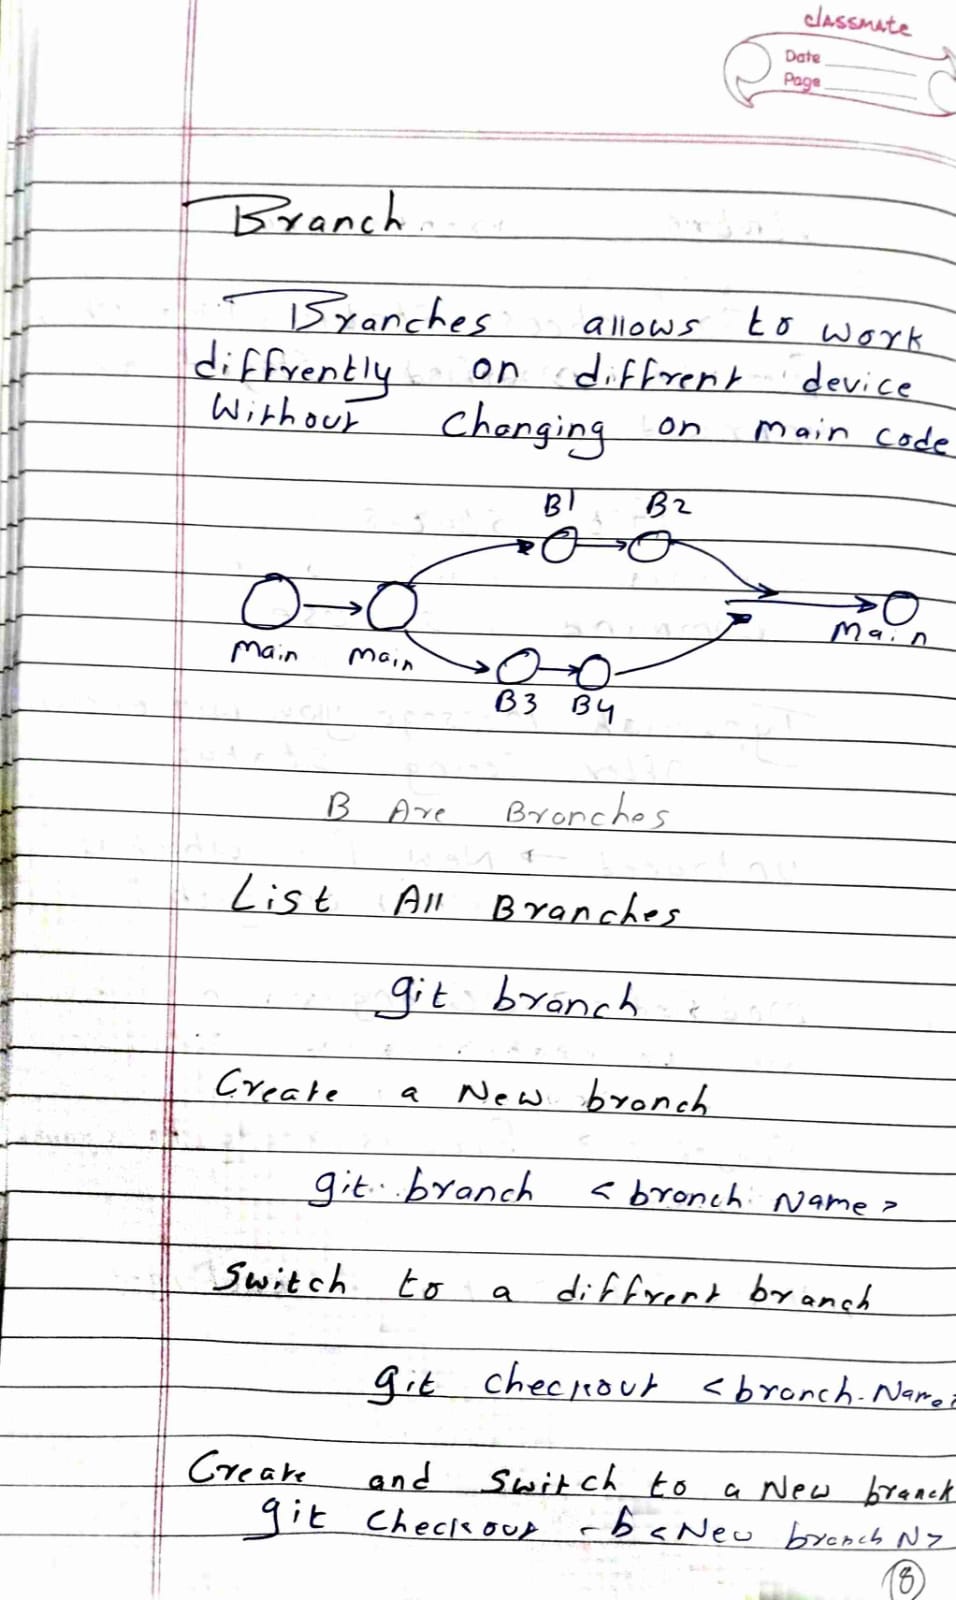 classmate
Date
Page
Branch
Branches allows to work
diffrently on diffrent device
Without Changing on main code
B1 B2
Main Main Main
B3 B4
B Are Branches
List All Branches
git branch
Create a New branch
git branch < branch Name >
Switch to a diffrent branch
git checkout < branch Name >
Create and Switch to a New branch
git Checkout -b < New branch N >
18